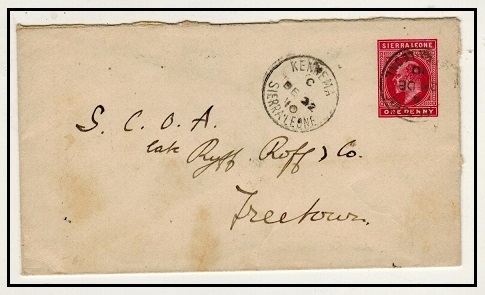 KENNEMA
C
DE 22
10
SIERRA-LEONE
SIERRA LEONE
ONE PENNY
S. C. O. A.
late Ryff Roff & Co.
Freetown.